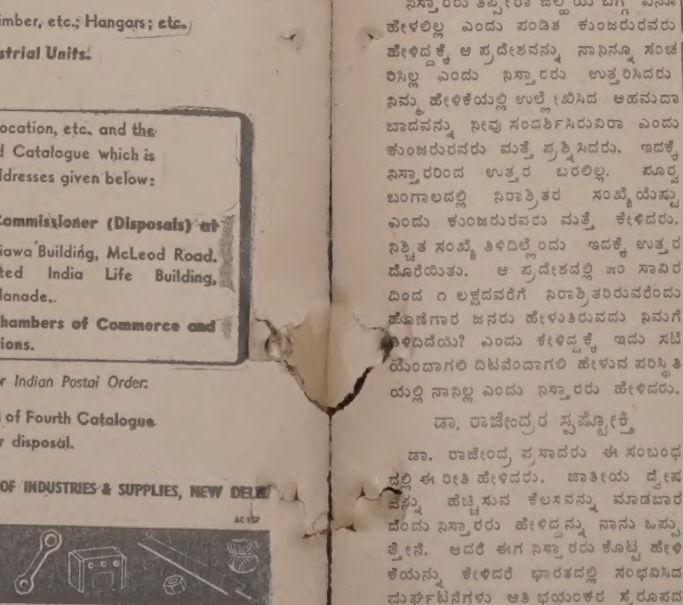 imber, etc.; Hangars; etc.
strial Units.
ocation, etc. and the
d Catalogue which is
ddresses given below:
Commissioner (Disposals) at
iawa Building, McLeod Road.
ted India Life Building,
lanade..
hambers of Commerce and
ions.
r Indian Postal Order.
of Fourth Catalogue
r disposal.
OF INDUSTRIES & SUPPLIES, NEW DELHI
ಹೇಳಲಿಲ್ಲ ಎಂದು ಪಂಡಿತ ಕುಂಜರುರವರು
ಹೇಳಿದ್ದಕ್ಕೆ ಆ ಪ್ರದೇಶವನ್ನು ನಾನಿನ್ನೂ ಸಂಚ
ರಿಸಿಲ್ಲ ಎಂದು ನಿಸ್ತಾರರು ಉತ್ತರಿಸಿದರು
ನಿಮ್ಮ ಹೇಳಿಕೆಯಲ್ಲಿ ಉಲ್ಲೇಖಿಸಿದ ಆಹಮದಾ
ಬಾದವನ್ನು ನೀವು ಸಂದರ್ಶಿಸಿರುವಿರಾ ಎಂದು
ಕುಂಜರುರವರು ಮತ್ತೆ ಪ್ರಶ್ನಿಸಿದರು. ಇದಕ್ಕೆ
ನಿಸ್ತಾರರಿಂದ ಉತ್ತರ ಬರಲಿಲ್ಲ. ಪೂರ್ವ
ಬಂಗಾಲದಲ್ಲಿ ನಿರಾಶ್ರಿತರ ಸಂಖ್ಯೆಯೆಷ್ಟು
ಎಂದು ಕುಂಜರುರವರು ಮತ್ತೆ ಕೇಳಿದರು.
ನಿಶ್ಚಿತ ಸಂಖ್ಯೆ ತಿಳಿದಿಲ್ಲೆಂದು ಇದಕ್ಕೆ ಉತ್ತರ
ದೊರೆಯಿತು. ಆ ಪ್ರದೇಶದಲ್ಲಿ ೫೦ ಸಾವಿರ
ದಿಂದ ೧ ಲಕ್ಷದವರೆಗೆ ನಿರಾಶ್ರಿತರಿರುವರೆಂದು
ಹೊಣೆಗಾರ ಜನರು ಹೇಳುತಿರುವದು ನಿಮಗೆ
ತಿಳಿದಿದೆಯೆ? ಎಂದು ಕೇಳಿದ್ದಕ್ಕೆ ಇದು ಸಟೆ
ಯೆಂದಾಗಲಿ ದಿಟವೆಂದಾಗಲಿ ಹೇಳುವ ಪರಿಸ್ಥಿತಿ
ಯಲ್ಲಿ ನಾನಿಲ್ಲ ಎಂದು ನಿಸ್ತಾರರು ಹೇಳಿದರು.
ಡಾ. ರಾಜೇಂದ್ರರ ಸ್ಪಷ್ಟೋಕ್ತಿ
ಡಾ. ರಾಜೇಂದ್ರ ಪ್ರಸಾದರು ಈ ಸಂಬಂಧ
ದಲ್ಲಿ ಈ ರೀತಿ ಹೇಳಿದರು. ಜಾತೀಯ ದ್ವೇಷ
ವನ್ನು ಹೆಚ್ಚಿಸುವ ಕೆಲಸವನ್ನು ಮಾಡಬಾರ
ದೆಂದು ನಿಸ್ತಾರರು ಹೇಳಿದ್ದನ್ನು ನಾನು ಒಪ್ಪು
ತ್ತೇನೆ. ಆದರೆ ಈಗ ನಿಸ್ತಾರರು ಕೊಟ್ಟ ಹೇಳಿ
ಕೆಯನ್ನು ಕೇಳಿದರೆ ಭಾರತದಲ್ಲಿ ಸಂಭವಿಸಿದ
ದುರ್ಘಟನೆಗಳು ಅತಿ ಭಯಂಕರ ಸ್ವರೂಪದ